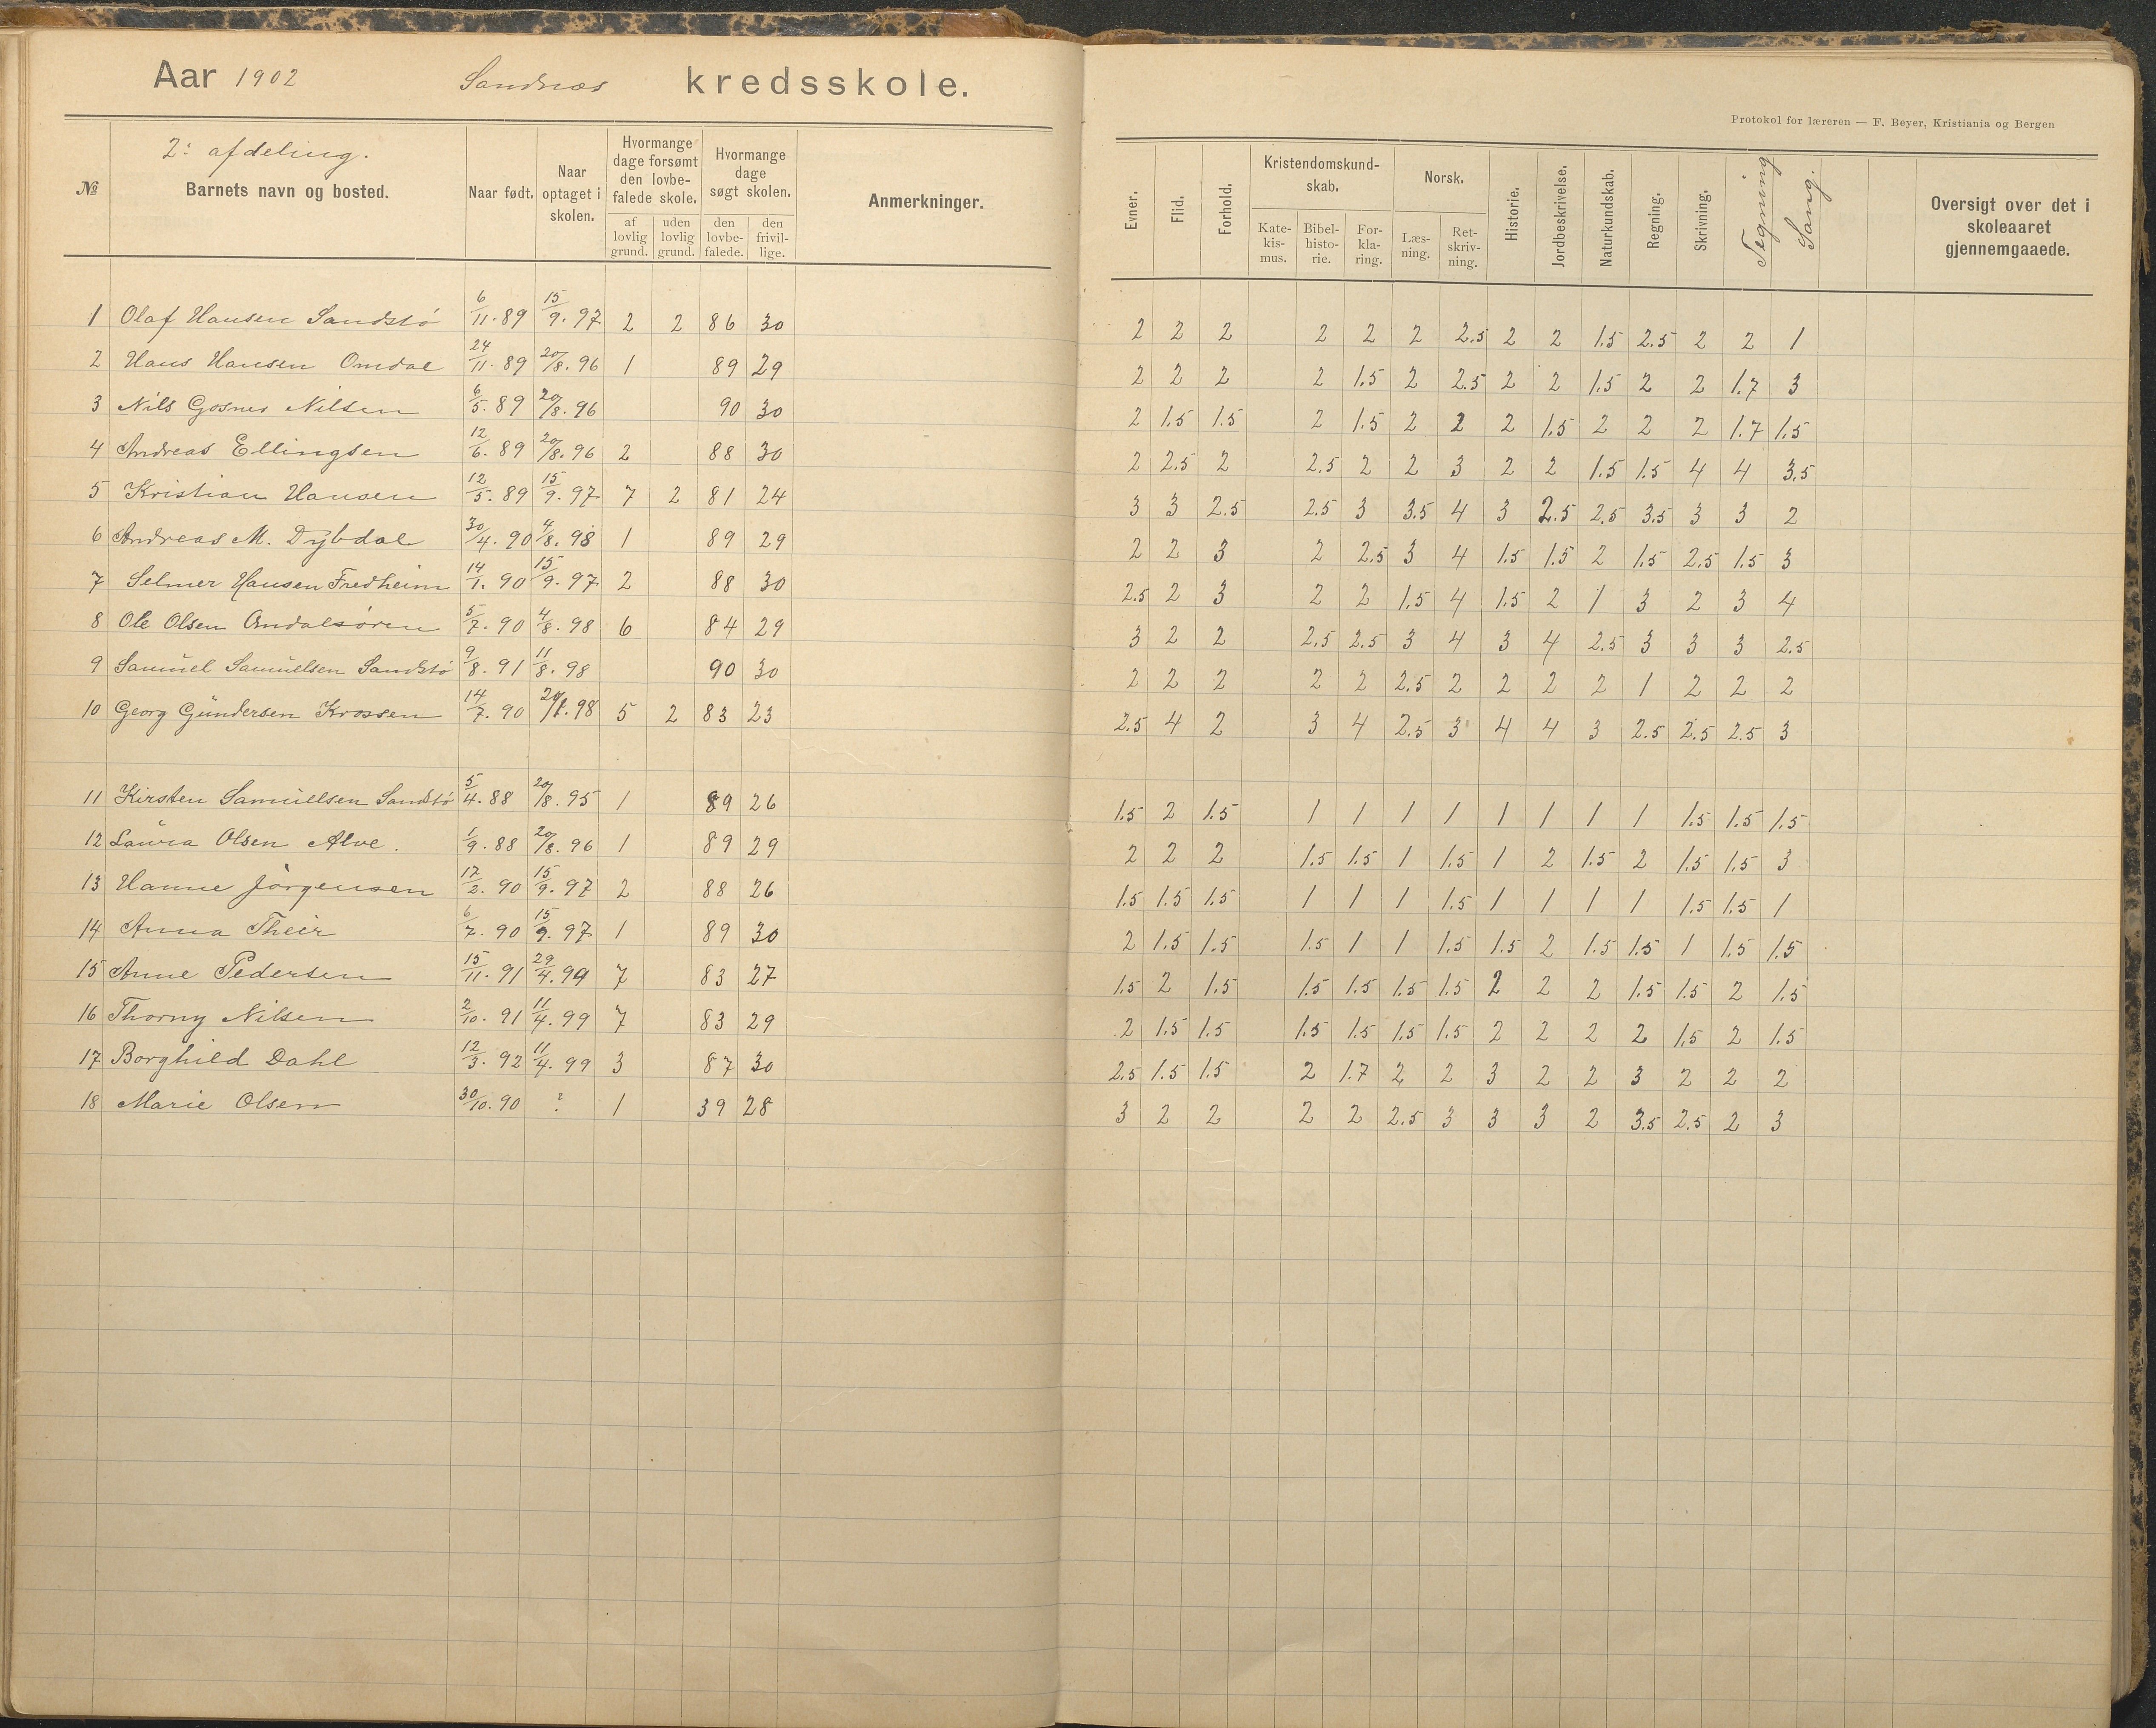 Aar 1902 Sandnæs kredsskole.
Protokol for læreren — F. Beyer, Kristiania og Bergen
2: afdeling.
№ Barnets navn og bosted. Naar født. Naar optaget i skolen. Hvormange dage forsømt den lovbefalede skole. af lovlig grund. uden lovlig grund. Hvormange dage søgt skolen. den lovbefalede. den frivillige. Anmerkninger. Evner. Flid. Forhold. Kristendomskundskab. Katekismus. Bibelhistorie. Forklaring. Norsk. Læsning. Retskrivning. Historie. Jordbeskrivelse. Naturkundskab. Regning. Skrivning. Tegning Sang. Oversigt over det i skoleaaret gjennemgaaede.
1 Olaf Hansen Sandstø 6/11.89 15/9.97 2 2 86 30 2 2 2 2 2 2 2.5 2 2 1.5 2.5 2 2 1
2 Hans Hansen Omdal 24/11.89 20/8.96 1 89 29 2 2 2 2 1.5 2 2.5 2 2 1.5 2 2 1.7 3
3 Nils Gosnes Nilsen 6/5.89 20/8.96 90 30 2 1.5 1.5 2 1.5 2 2 2 1.5 2 2 2 1.7 1.5
4 Andreas Ellingsen 12/6.89 20/8.96 2 88 30 2 2.5 2 2.5 2 2 3 2 2 1.5 1.5 4 4 3.5
5 Kristian Hansen 12/5.89 15/9.97 7 2 81 24 3 3 2.5 2.5 3 3.5 4 3 2.5 2.5 3.5 3 3 2
6 Andreas M. Dybdal 30/4.90 4/8.98 1 89 29 2 2 3 2 2.5 3 4 1.5 1.5 2 1.5 2.5 1.5 3
7 Selmer Hansen Fredheim 14/1.90 15/9.97 2 88 30 2.5 2 3 2 2 1.5 4 1.5 2 1 3 2 3 4
8 Ole Olsen Omdalsøren 5/7.90 4/8.98 6 84 29 3 2 2 2.5 2.5 3 4 3 4 2.5 3 3 3 2.5
9 Samuel Samuelsen Sandstø 9/8.91 11/8.98 90 30 2 2 2 2 2 2.5 2 2 2 2 1 2 2 2
10 Georg Gundersen Krossen 14/7.90 98 5 2 83 23 2.5 4 2 3 4 2.5 3 4 4 3 2.5 2.5 2.5 3
11 Kirsten Samuelsen Sandstø 5/4.88 20/8.95 1 89 26 1.5 2 1.5 1 1 1 1 1 1 1 1 1.5 1.5 1.5
12 Laura Olsen Alve. 1/9.88 20/8.96 1 89 29 2 2 2 1.5 1.5 1 1.5 1 2 1.5 2 1.5 1.5 3
13 Hanne Jørgensen 17/2.90 15/9.97 2 88 26 1.5 1.5 1.5 1 1 1 1.5 1 1 1 1 1.5 1.5 1
14 Anna Their 6/7.90 15/9.97 1 89 30 2 1.5 1.5 1.5 1 1 1.5 1.5 2 1.5 1.5 1 1.5 1.5
15 Anne Pedersen 15/11.91 29/4.99 7 83 27 1.5 2 1.5 1.5 1.5 1.5 1.5 2 2 2 1.5 1.5 2 1.5
16 Thorny Nilsen 2/10.91 11/4.99 7 83 29 2 1.5 1.5 1.5 1.5 1.5 1.5 2 2 2 2 1.5 2 1.5
17 Borghild Dahl 12/3.92 11/4.99 3 87 30 2.5 1.5 1.5 2 1.7 2 2 3 2 2 3 2 2 2
18 Marie Olsen 30/10.90 ? 1 39 28 3 2 2 2 2 2.5 3 3 3 2 3.5 2.5 2 3